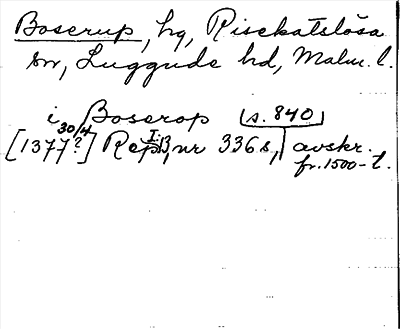 Boserup, hg, Risekatslösa
sn, Luggude hd, Malm. l.
i Boserop (s. 840)
[1377? 30/4] Rep I:3, nr 336 s, avskr.
fr. 1500-t.